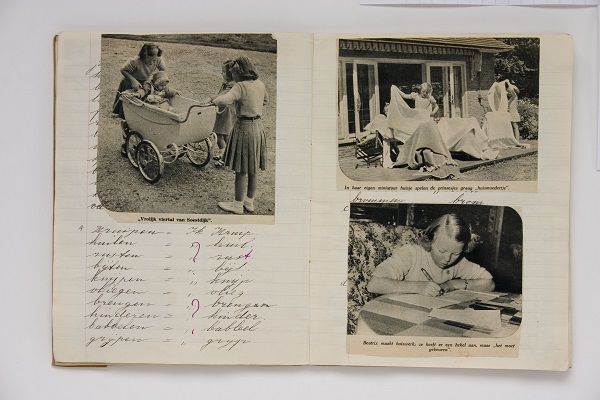 „Vrolijk viertal van Soestdijk".
kruipen = Ik kruip
huilen = „ huil
rusten = „ rust
byten = „ byt
knypen = „ knyp
vliegen = „ vlieg
brengen = „ brengen
hinderen = „ hinder
babbelen = „ babbel
grypen = „ gryp
In haar eigen miniatuur huisje spelen de prinsesjes graag „huismoedertje".
brommen brom
Beatrix maakt huiswerk; ze heeft er een hekel aan, maar „het moet
gebeuren".